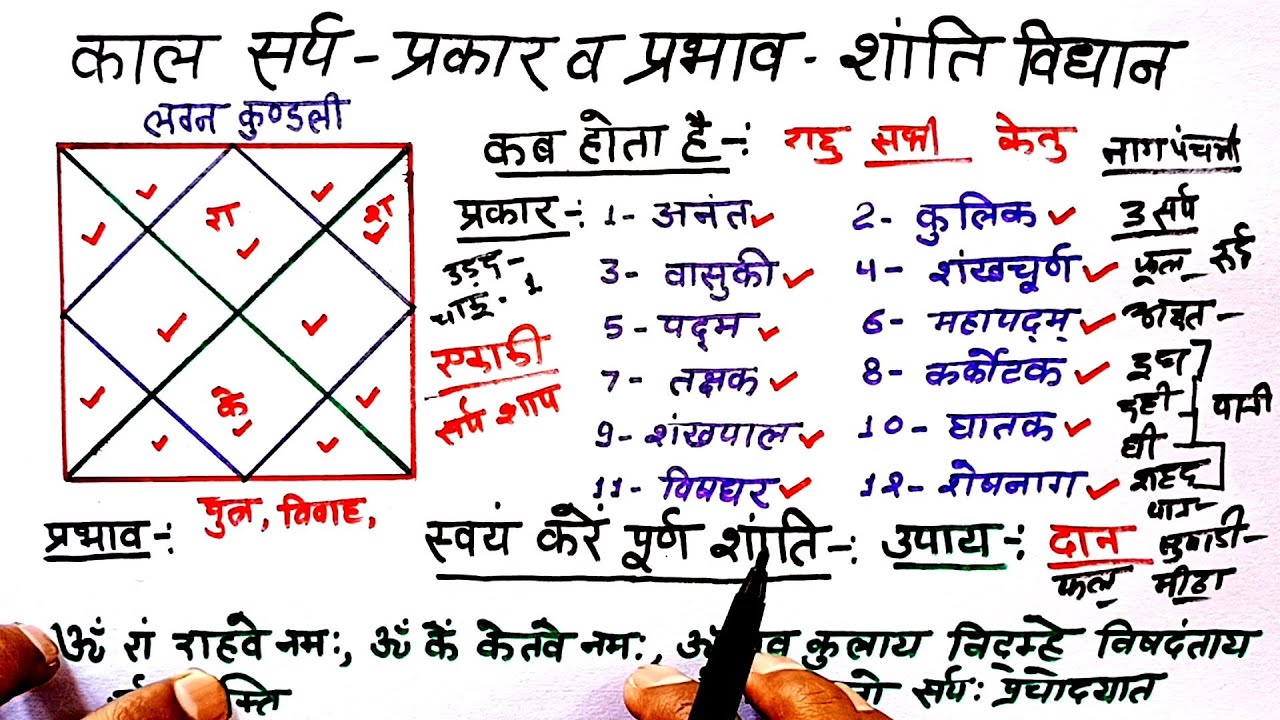 काल सर्प - प्रकार व प्रभाव - शांति विधान
लग्न कुण्डली
कब होता है -: राहु सभी केतु
नागपंचमी
प्रकार -: 1- अनंत 2- कुलिक
3 सर्प
3- वासुकी 4- शंखचूर्ण
फूल रुई
5- पद्म 6- महापद्म्
7- तक्षक 8- कर्कोटक
9- शंखपाल 10- घातक
11- विषधर 12- शेषनाग
उड़द -
सर्प शाप
दही
घी
शहद
पान -
श
के
पुत्र, विवाह,
प्रभाव -: स्वयं करें पूर्ण शांति -: उपाय -: दान
फल मीठा
ॐ रां राहवे नमः, ॐ कें केतवे नमः, ॐ कुलाय विद्महे विषदंताय
सर्पः प्रचोदयात